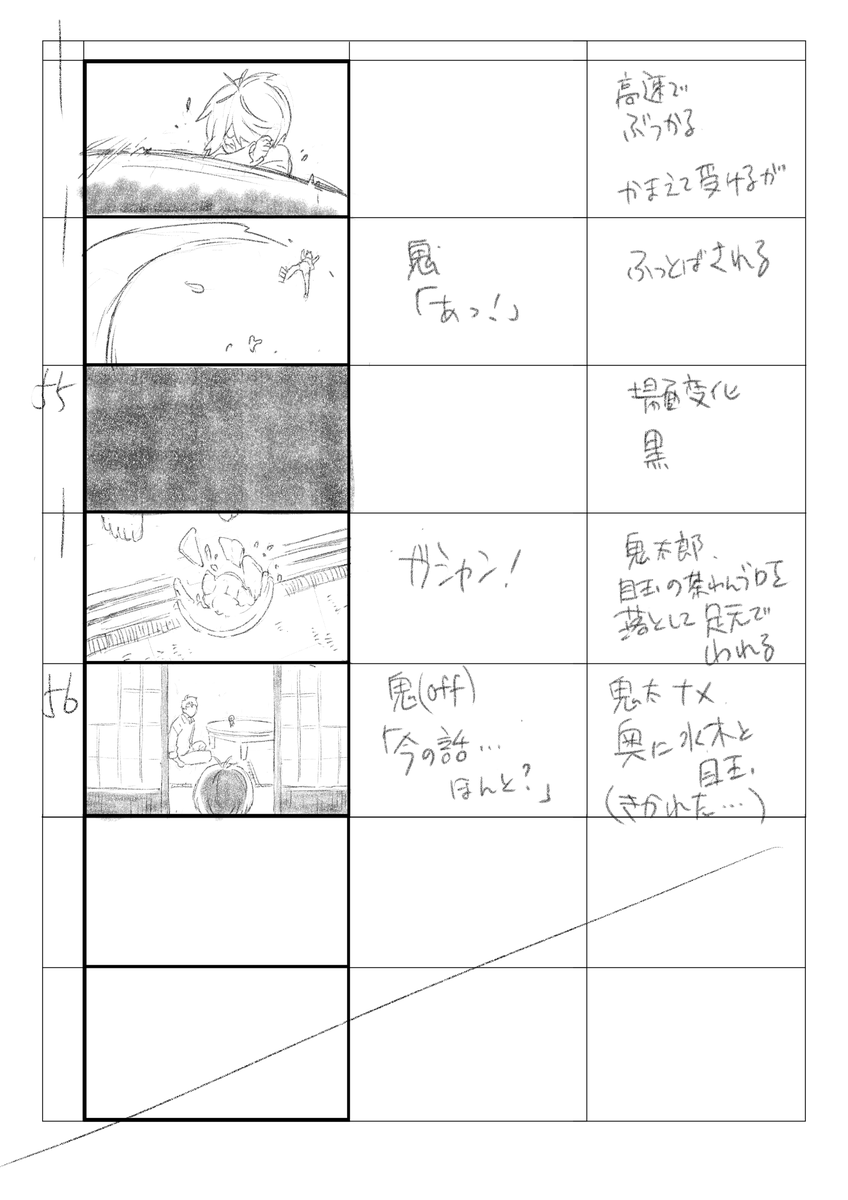 高速で
ぶつかる
かまえて受けるが
鬼
「あっ!」
ふっとばされる
55
場面変化
黒
ガシャン!
鬼太郎、
目玉の茶わんブロを
落として足元で
われる
56
鬼(off)
「今の話…
ほんと?」
鬼太ナメ
奥に水木と
目玉、
(きかれた…)